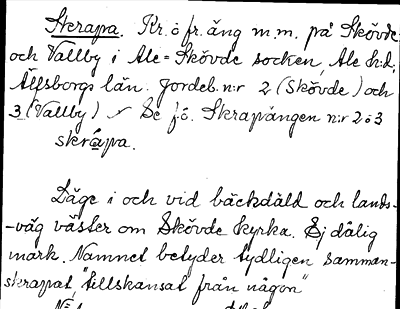 Skrapa. Kr. ö fr. äng m.m. på Skövde
och Vallby i Ale-Skövde socken, Ale h:d,
Älfsborgs län. Jordeb. n:r 2 (Skövde) och
3 (Vallby) Se f.ö. Skrapängen n:r 2 o 3
skråpa.
Läge i och vid bäckdäld och lands-
-väg väster om Skövde kyrka. Ej dålig
mark. Namnet betyder tydligen samman-
skrapat, "tillskansat från någon"